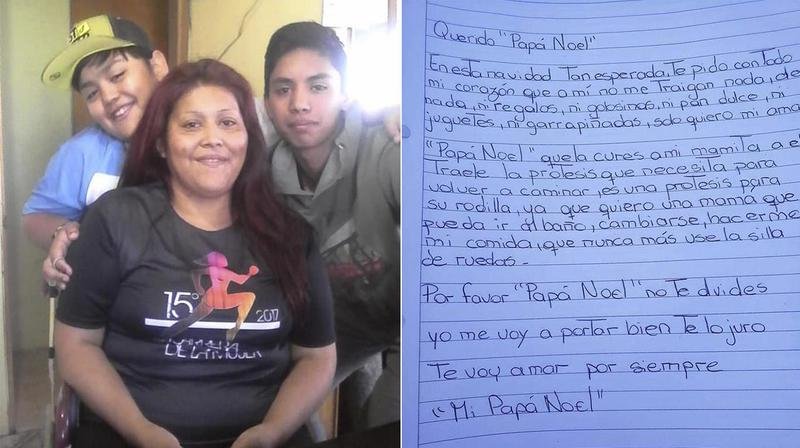 15°
2017
DE LA MUJER
Querido "Papá Noel"
En esta navidad Tan esperada, Te pido con Todo
mi corazón que a mí no me Traigan nada, de
nada, ni regalos, ni golosinas, ni pan dulce, ni
jugueles, ni garrapiñadas, solo quiero mi ama
"Papá Noel" que la cures a mi mamita a e
Traele la protesis que necesila para
volver a caminar, es una protesis para
su rodilla, ya que quiero una mama que
pueda ir al baño, cambiarse, hacerme
mi comida, que nunca más use la silla
de ruedas.
Por favor "Papá Noel" no Te olvides
yo me voy a portar bien Te lo juro
Te voy amar por siempre
"Mi Papá Noel"